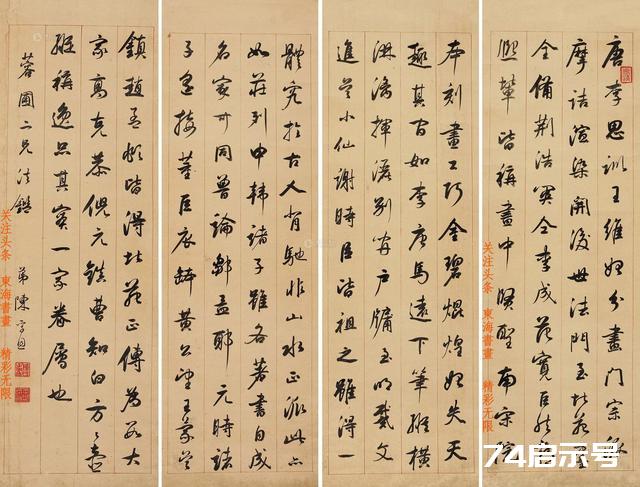 唐李思訓王維始分畫門宗派
摩詰渲染開後世法門至北苑墨
全備荊浩関仝李成范寬巨然郭
熙輩皆稱畫中賢聖南宋院
本刻畫工巧金碧焜煌始失天
趣其間如李唐馬遠下筆縱橫
淋漓揮灑別開戶牖至明戴文
進吳小仙謝時臣皆祖之雖得一
體究於古人背馳非山水正派此亦
如莊列申韓諸子雖各著書自成
名家可同魯論鄒孟耶元時諸
子遙接董巨衣缽黃公望王蒙吳
鎮趙孟頫皆得北苑正傳為元大
家高克恭倪元鎮曹知白方方壺
縱稱逸品其實一家眷屬也
蓉圃二兄法鑑
弟陳
关注头条 東海書畫 精彩无限
关注头条 東海書畫 精彩无限
74启示号